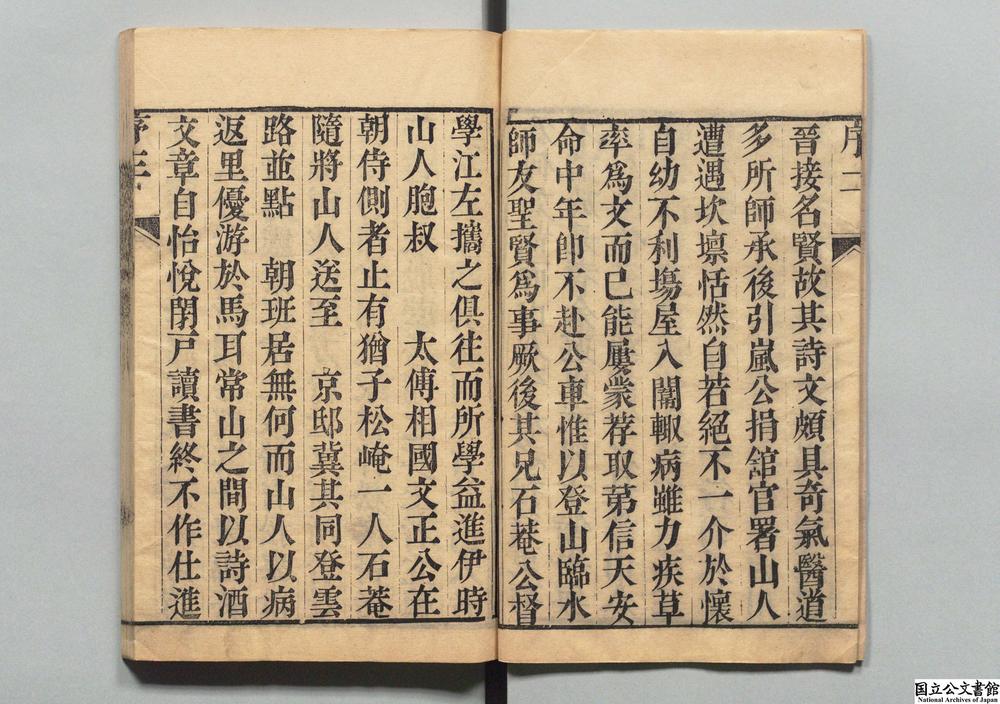 序二
晉接名賢故其詩文頗具奇氣醫道
多所師承後引嵐公捐舘官署山人
遭遇坎壈恬然自若絕不一介於懷
自幼不利塲屋入闈輙病雖力疾草
率爲文而已能屢蒙荐取苐信天安
命中年卽不赴公車惟以登山臨水
師友聖賢爲事厥後其兄石菴公督
學江左攜之俱往而所學益進伊時
山人胞叔 太傅相國文正公在
朝侍側者止有猶子松崦一人石菴
隨將山人送至 京邸冀其同登雲
路並點 朝班居無何而山人以病
返里優游於馬耳常山之間以詩酒
文章自怡悅閉戸讀書終不作仕進
序三
国立公文書館
National Archives of Japan